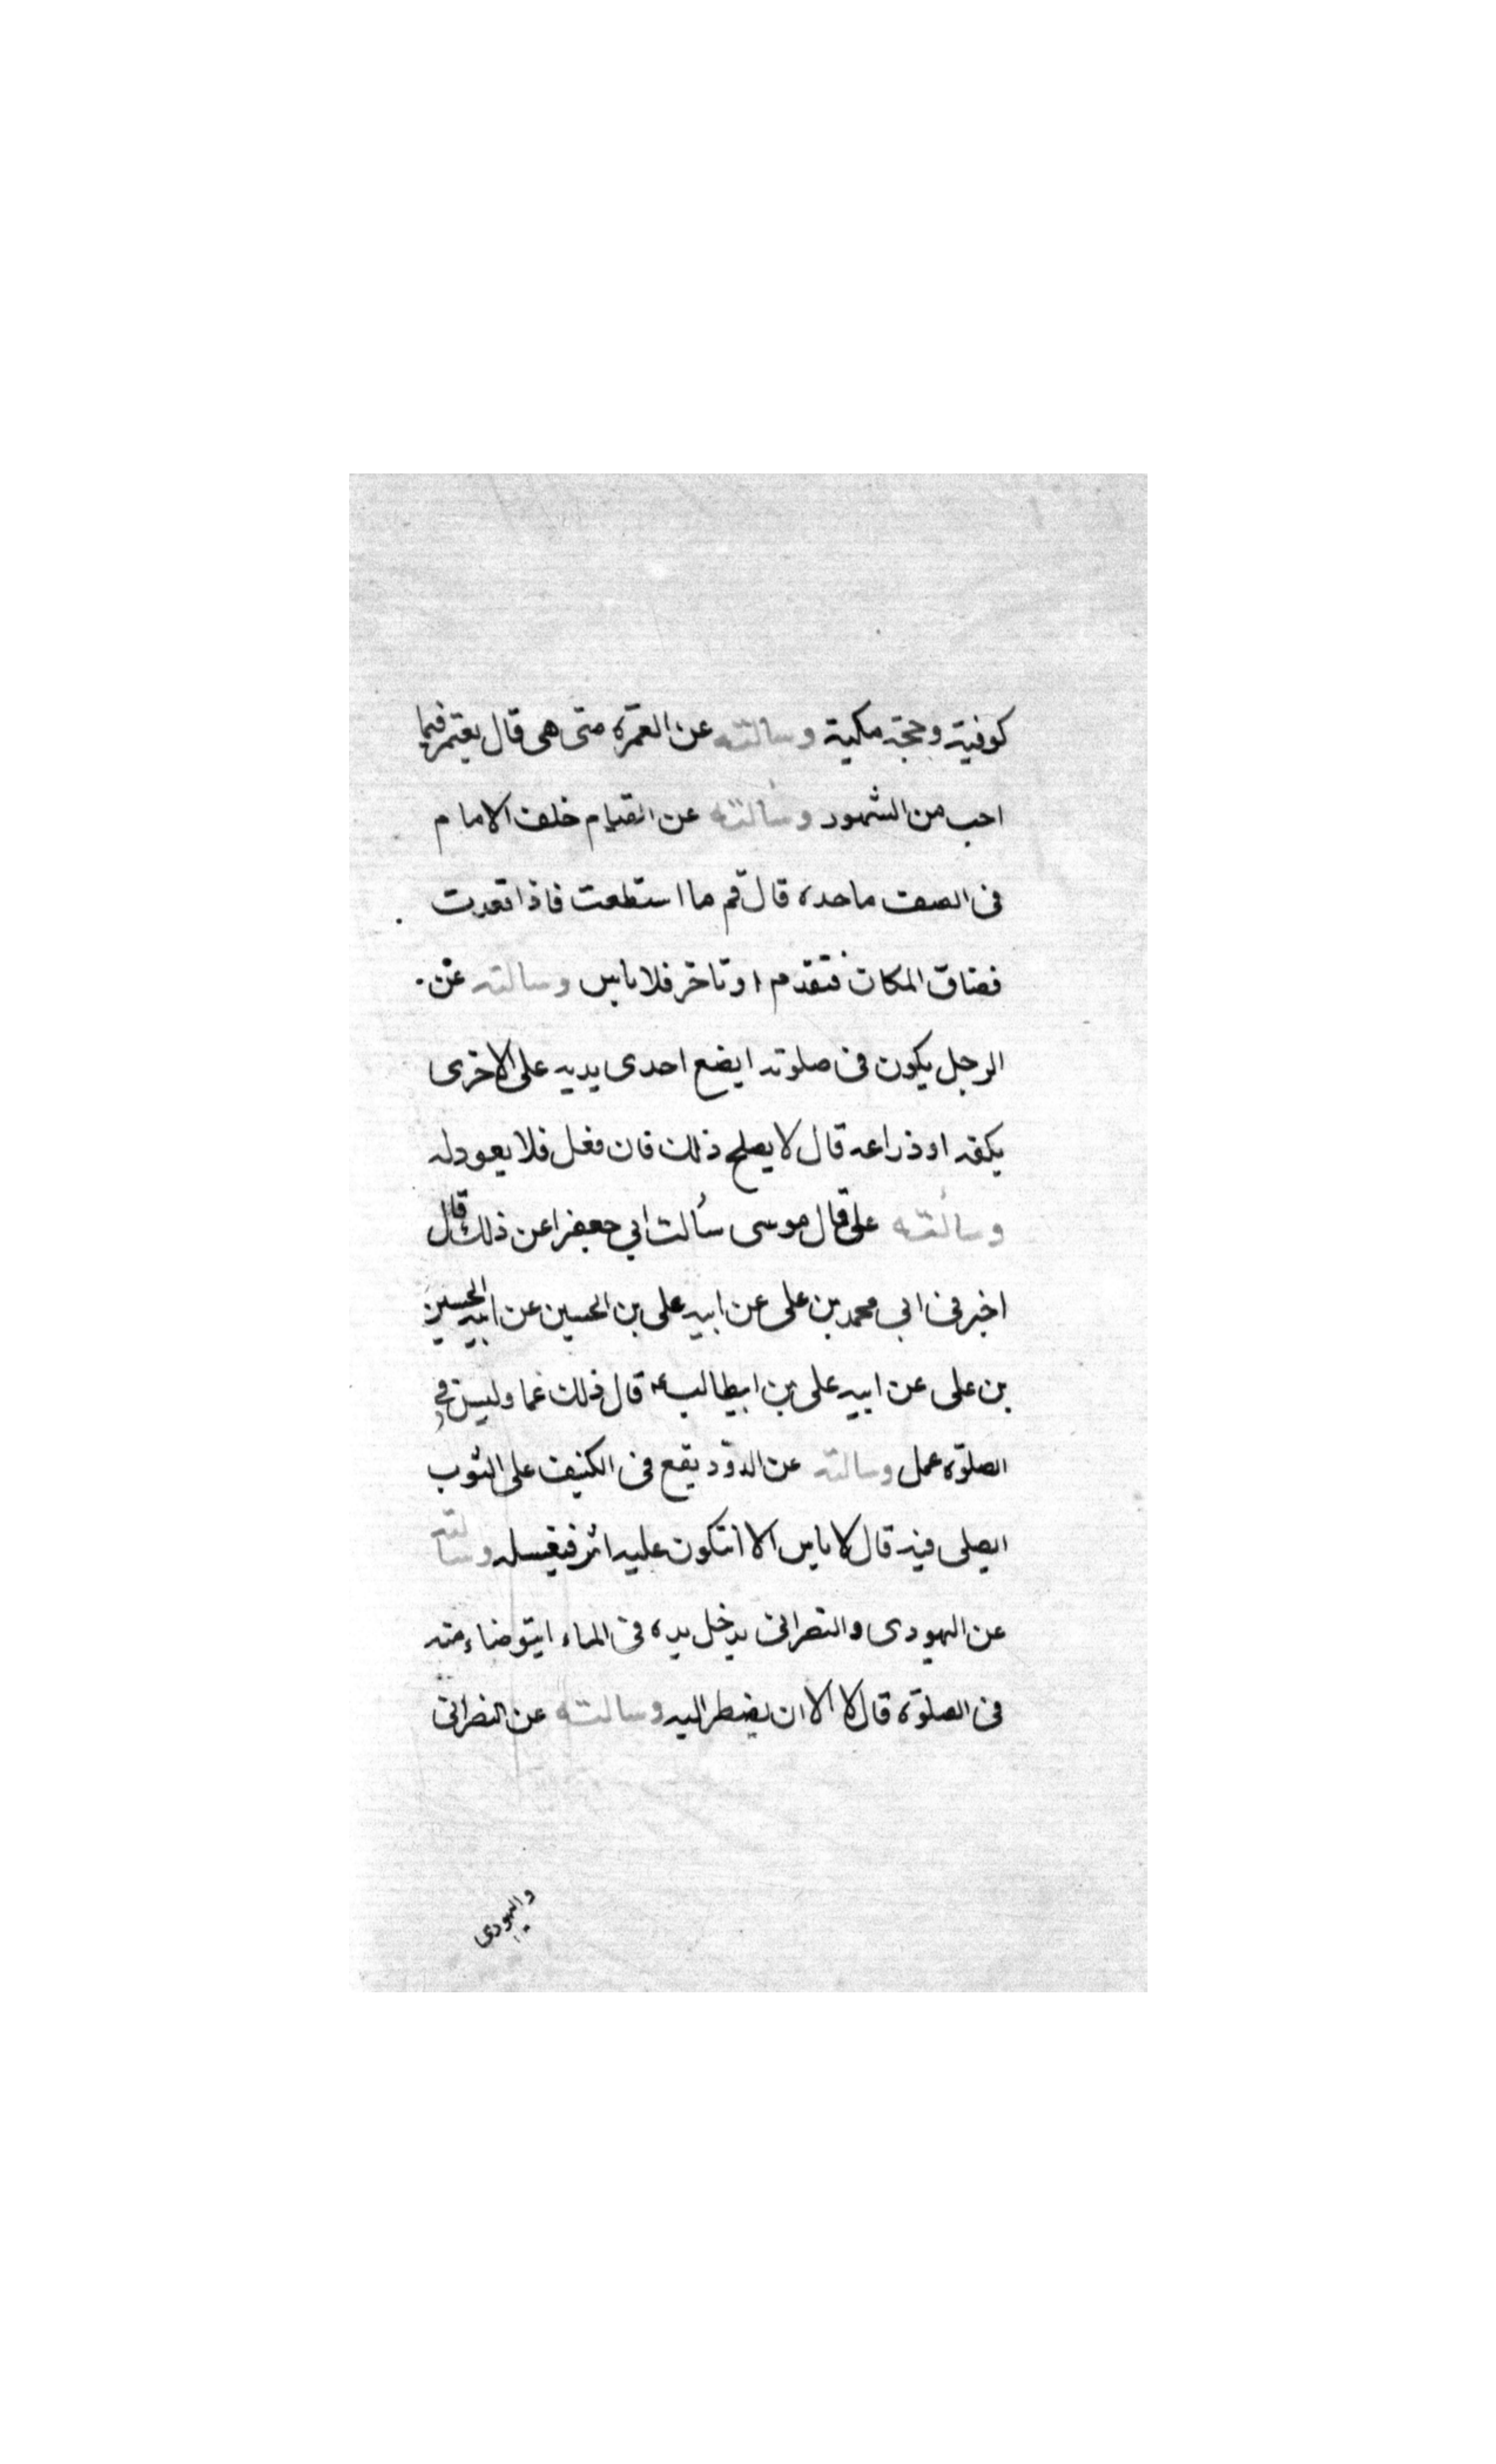 كوفية وحجة مكية وسالته عن العمرة متى هى قال يعتمر فيما
احب من الشهور وسألته عن القيام خلف الامام
فى الصف ماحده قال قم ما استطعت فاذا قعدت
فضاق المكان فتقدم او تاخر فلا باس وسالته عن
الرجل يكون فى صلوته ايضع احدى يديه على الاخرى
بكفه او ذراعه قال لا يصلح ذلك فان فعل فلا يعود له
وسألته على قال موسى سألت ابي جعفرا عن ذلك قال
اخبرنى ابي محمد بن على عن ابيه على بن الحسين عن ابيه الحسين
بن على عن ابيه على بن ابيطالب ع قال ذلك عما وليس في
الصلوة عمل وسالته عن الدود يقع فى الكنيف على الثوب
ايصلى فيه قال لا باس الا انتكون عليه اثر فيغسله وسالته
عن اليهودى والنصرانى يدخل يده فى الماء ايتوضاء منه
فى الصلوة قال لا الا ان يضطر اليه وسالته عن النصرانى
واليهودى